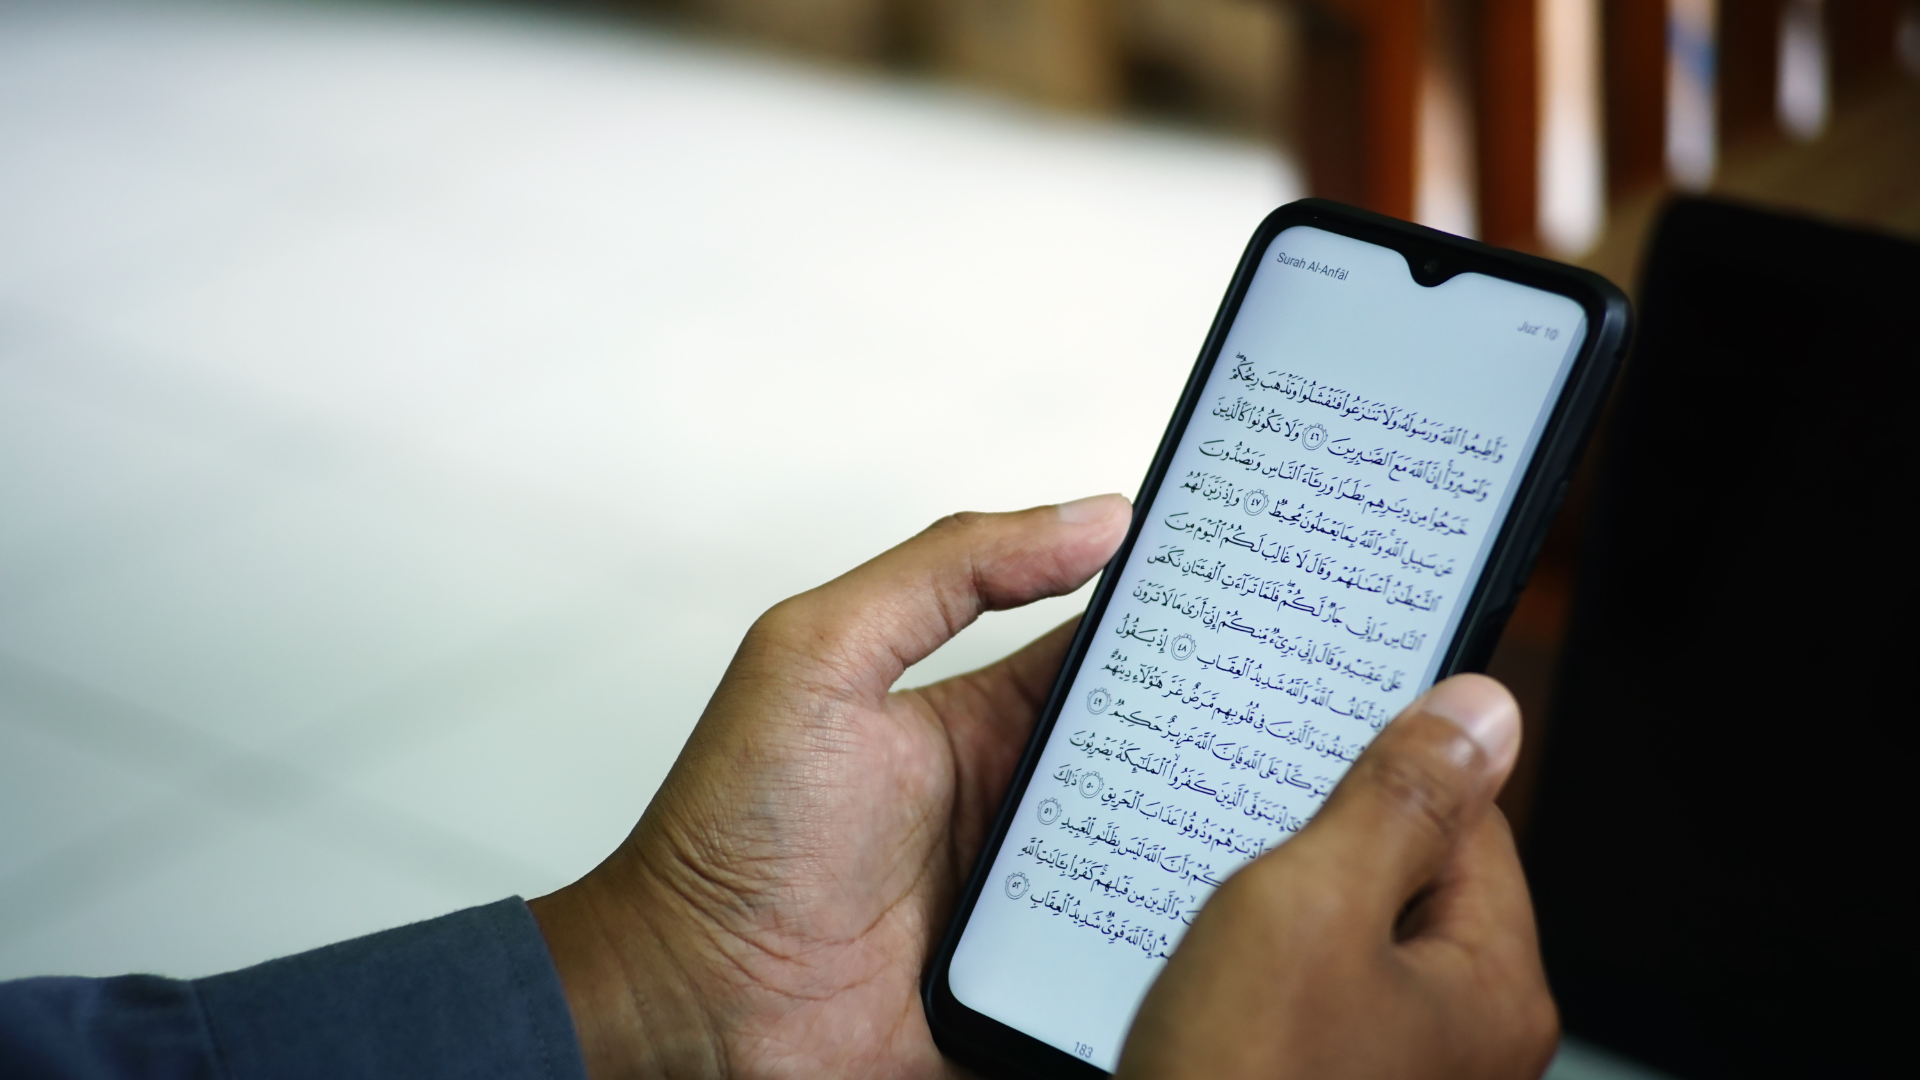 Surah Al-Anfāl
Juz' 10
وَأَطِيعُوا۟ ٱللَّهَ وَرَسُولَهُۥ وَلَا تَنَـٰزَعُوا۟ فَتَفْشَلُوا۟ وَتَذْهَبَ رِيحُكُمْ ۖ
وَٱصْبِرُوٓا۟ ۚ إِنَّ ٱللَّهَ مَعَ ٱلصَّـٰبِرِينَ ٤٦ وَلَا تَكُونُوا۟ كَٱلَّذِينَ
خَرَجُوا۟ مِن دِيَـٰرِهِم بَطَرًا وَرِئَآءَ ٱلنَّاسِ وَيَصُدُّونَ
عَن سَبِيلِ ٱللَّهِ ۚ وَٱللَّهُ بِمَا يَعْمَلُونَ مُحِيطٌ ٤٧ وَإِذْ زَيَّنَ لَهُمُ
ٱلشَّيْطَـٰنُ أَعْمَـٰلَهُمْ وَقَالَ لَا غَالِبَ لَكُمُ ٱلْيَوْمَ مِنَ
ٱلنَّاسِ وَإِنِّى جَارٌ لَّكُمْ ۖ فَلَمَّا تَرَآءَتِ ٱلْفِئَتَانِ نَكَصَ
عَلَىٰ عَقِبَيْهِ وَقَالَ إِنِّى بَرِىٓءٌ مِّنكُمْ إِنِّىٓ أَرَىٰ مَا لَا تَرَوْنَ
إِنِّىٓ أَخَافُ ٱللَّهَ ۚ وَٱللَّهُ شَدِيدُ ٱلْعِقَابِ ٤٨ إِذْ يَقُولُ
وَٱلَّذِينَ فِى قُلُوبِهِم مَّرَضٌ غَرَّ هَـٰٓؤُلَآءِ دِينُهُمْ ۗ
عَلَى ٱللَّهِ فَإِنَّ ٱللَّهَ عَزِيزٌ حَكِيمٌ ٤٩
إِذْ يَتَوَفَّى ٱلَّذِينَ كَفَرُوا۟ ۙ ٱلْمَلَـٰٓئِكَةُ يَضْرِبُونَ
وَأَدْبَـٰرَهُمْ وَذُوقُوا۟ عَذَابَ ٱلْحَرِيقِ ٥٠ ذَٰلِكَ
وَأَنَّ ٱللَّهَ لَيْسَ بِظَلَّـٰمٍ لِّلْعَبِيدِ ٥١
وَٱلَّذِينَ مِن قَبْلِهِمْ ۚ كَفَرُوا۟ بِـَٔايَـٰتِ ٱللَّهِ
إِنَّ ٱللَّهَ قَوِىٌّ شَدِيدُ ٱلْعِقَابِ ٥٢
183